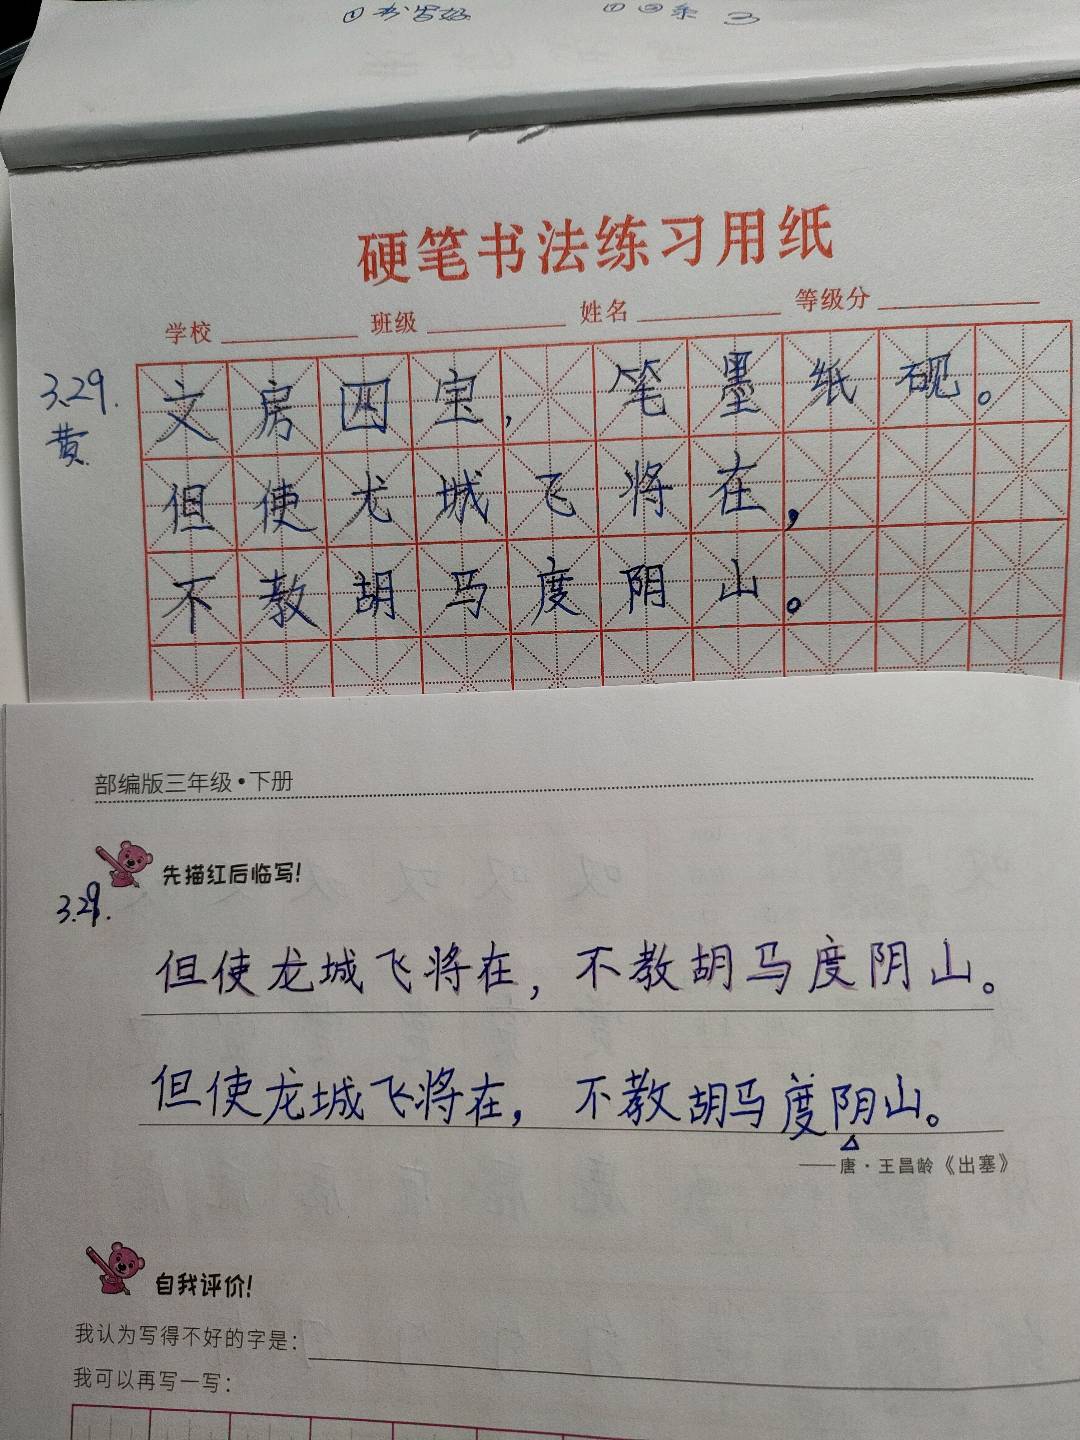 ①书写好 ①②条 3
硬笔书法练习用纸
学校 班级 姓名 等级分
3.29.
黄
文房四宝，笔墨纸砚。
但使尤城飞将在，
不教胡马度阴山。
部编版三年级•下册
先描红后临写!
3.29.
但使龙城飞将在，不教胡马度阴山。
但使龙城飞将在，不教胡马度阴山。
——唐·王昌龄《出塞》
自我评价!
我认为写得不好的字是：
我可以再写一写：